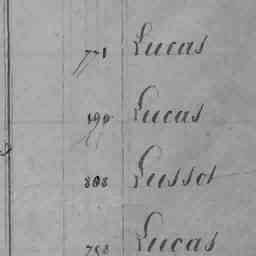 771 Lucas
190 Lucas
808 Lussot
758 Lucas